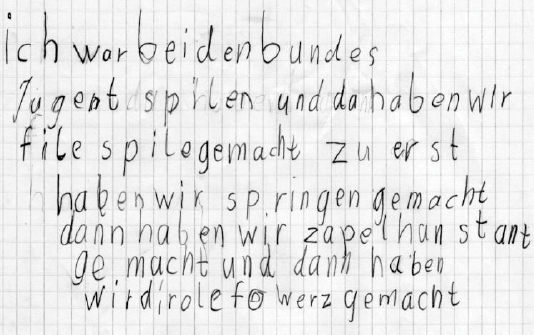 ich war beidenbundes
Jugent spilen und da haben wir
file spilegemacht zu erst
haben wir springen gemacht
dann haben wir zapelhanstant
ge macht und dann haben
wirdirolefowerz gemacht